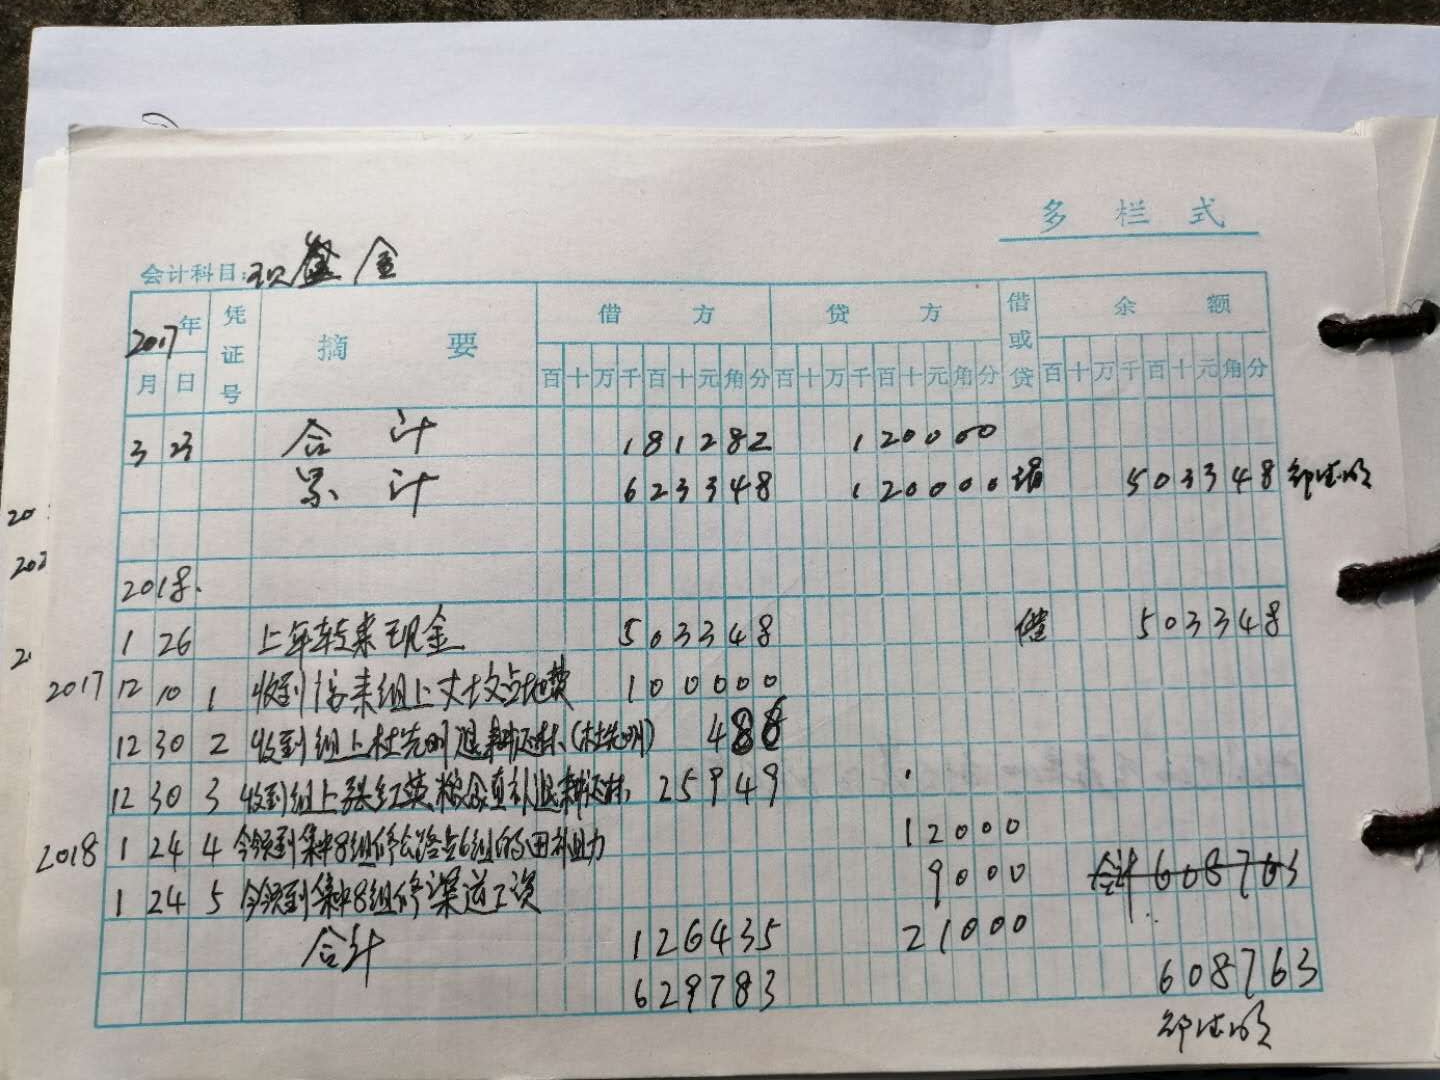 多栏式
会计科目:现金
2017年 凭证号 摘要 借方 贷方 借或贷 余额
月 日 百十万千百十元角分 百十万千百十元角分 百十万千百十元角分
3 23 合计 181282 120000
累计 623348 120000 503348
2018.
1 26 上年转来现金 503348 借 503348
2017 12 10 1 收到 组上 100000
12 30 2 收到组上杜先明退耕还林(杜先明) 486
12 30 3 收到组上张红英粮食直补退耕还林 25949
2018 1 24 4 今领到集中8组修公路占6组的田补助 12000
1 24 5 今领到集中8组修渠道工资 9000 合计 608763
合计 126435 21000
629783 608763